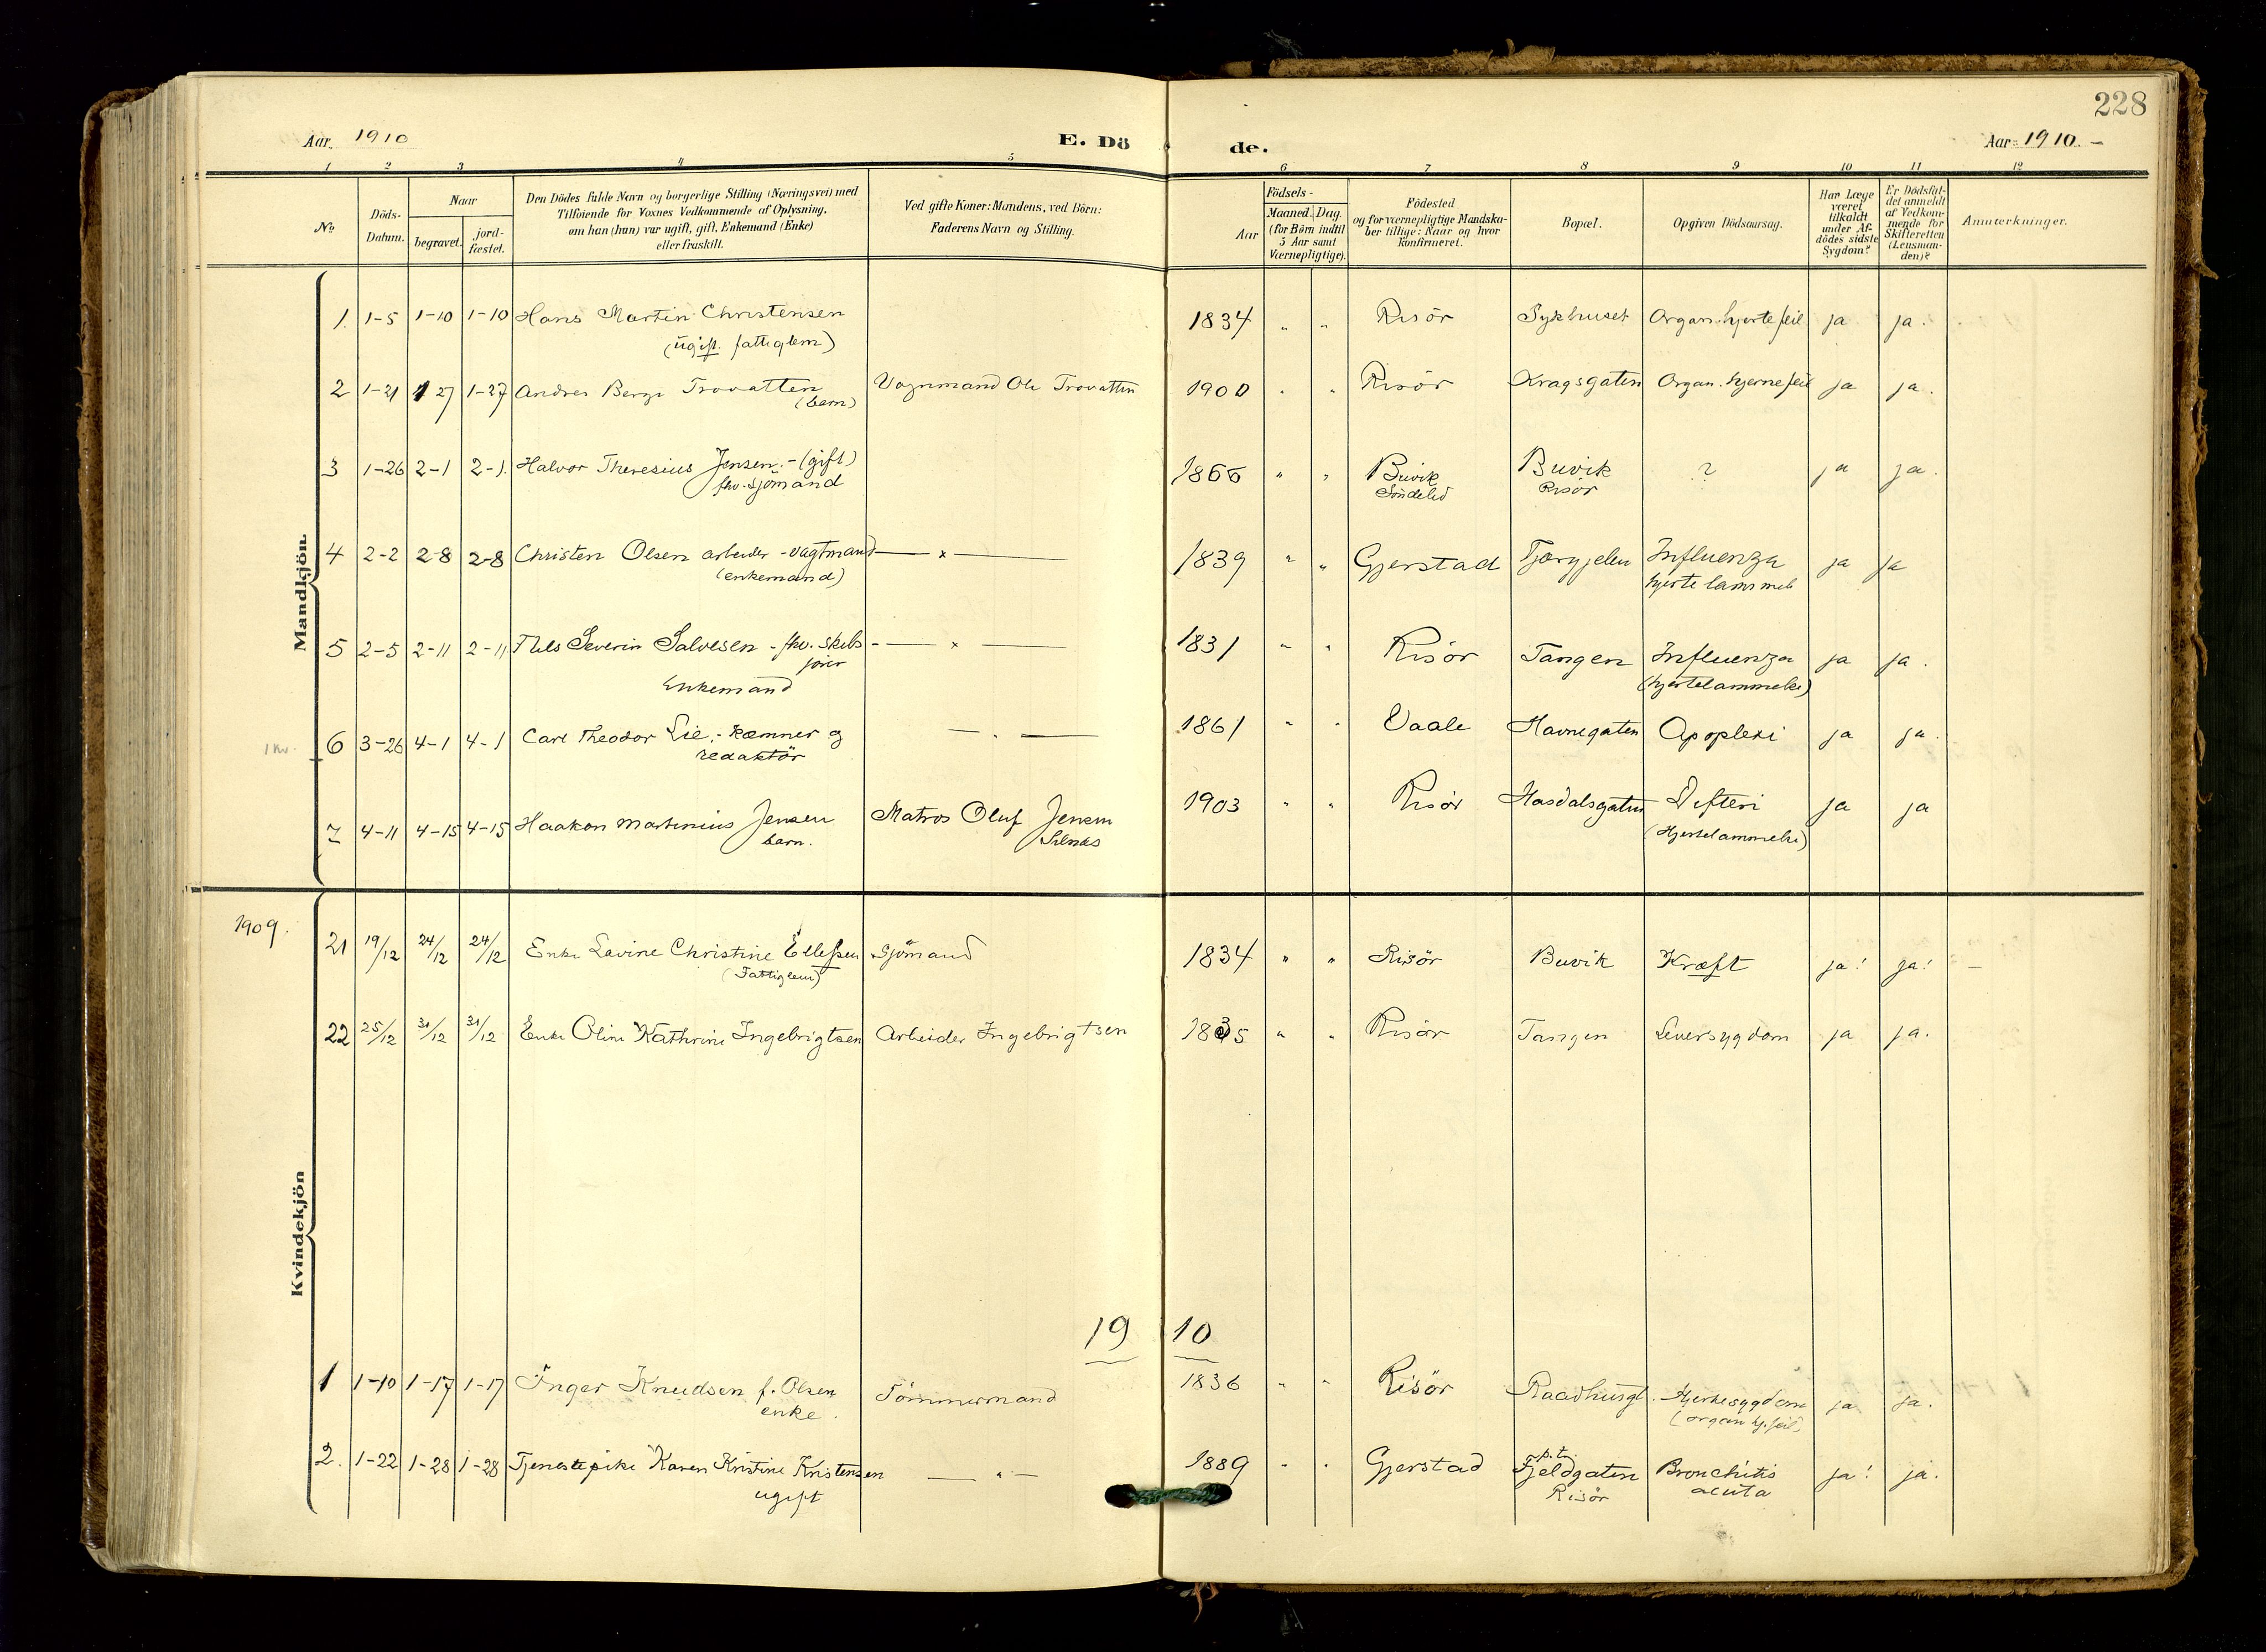 228
Aar. 1910
E. Dö
de.
Aar: 1910. –
1 2 3 4 5 6 7 8 9 10 11 12
№
Döds-
Datum.
Naar
begravet.
jord-
fæstet.
Den Dödes fulde Navn og borgerlige Stilling (Næringsvei) med
Tilföiende for Voxnes Vedkommende af Oplysning,
om han (hun) var ugift, gift, Enkemand (Enke)
eller fraskilt.
Ved gifte Koner: Mandens, ved Börn:
Faderens Navn og Stilling.
Födsels-
Aar
Maaned. Dag.
(for Børn indtil
5 Aar samt
Værnepligtige).
Födested
og for værnepligtige Mandska-
ber tillige: Naar og hvor
konfirmeret.
Bopæl.
Opgiven Dödsaarsag.
Har Læge
været
tilkaldt
under Af-
dödes sidste
Sygdom?
Er Dödsfal-
det anmeldt
af Vedkom-
mende for
Skifteretten
(Lensman-
den)?
Anmærkninger.
Mandkjön.
1. 1-5 1-10 1-10 Hans Martin Christensen 1834 " " Risör Sykhuset Organ. hjertefeil ja ja.
(ugift. fattiglem)
2 1-21 1 27 1-27 Andres Berge Trovatten Vognmand Ole Trovatten 1900 " " Risör Kragsgaten Organ. hjernefeil ja ja.
(barn)
3 1-26 2-1 2-1. Halvor Theresius Jensen. - (gift) " " Buvik Buvik ? ja ja.
fhv. sjömand Söndeled Risör
4 2-2 2-8 2-8 Christen Olsen arbeider - vagtmand — x — 1839 " " Gjerstad Influenza ja ja
(enkemand) hjertelammelse
5 2-5 2-11 2-11 Severin Salvesen - fhv. skibs - — x — 1831 " " Risör Tangen Influenza ja ja.
förer (hjertelammelse)
Enkemand
1 kv. 6 3-26 4-1 4-1 Carl Theodor Lie. - kæmner og — " — 1861 " " Vaale Havnegaten Apoplexi ja ja.
redaktör
7 4-11 4-15 4-15 Haakon Martinius Jensen Matros Oluf Jensen 1903 " " Risör Hasdalsgaten Difteri ja ja
barn. (Hjertelammelse)
1909.
Kvindekjön
21 19/12 24/12 24/12 Enke Lavine Christine Ellefsen Sjömand 1834 " " Risör Buvik Kræft ja! ja! —
(Fattiglem)
22 25/12 31/12 31/12 Enke Oline Kathrine Ingebrigtsen Arbeider Ingebrigtsen 1835 " " Risör Tangen Leversygdom ja ja.
19 10
1 1-10 1-17 1-17 Inger Knudsen f. Olsen Tömmermand 1836 " " Risör Raadhusgt. Hjertesygdom ja ja.
enke. (organ. hj. feil)
2. 1-22 1-28 1-28 Tjenestepike Karen Kristine Kristensen — " — 1889 " " Gjerstad p.t. Fjeldgaten Bronchitis ja! ja.
ugift Risör acuta